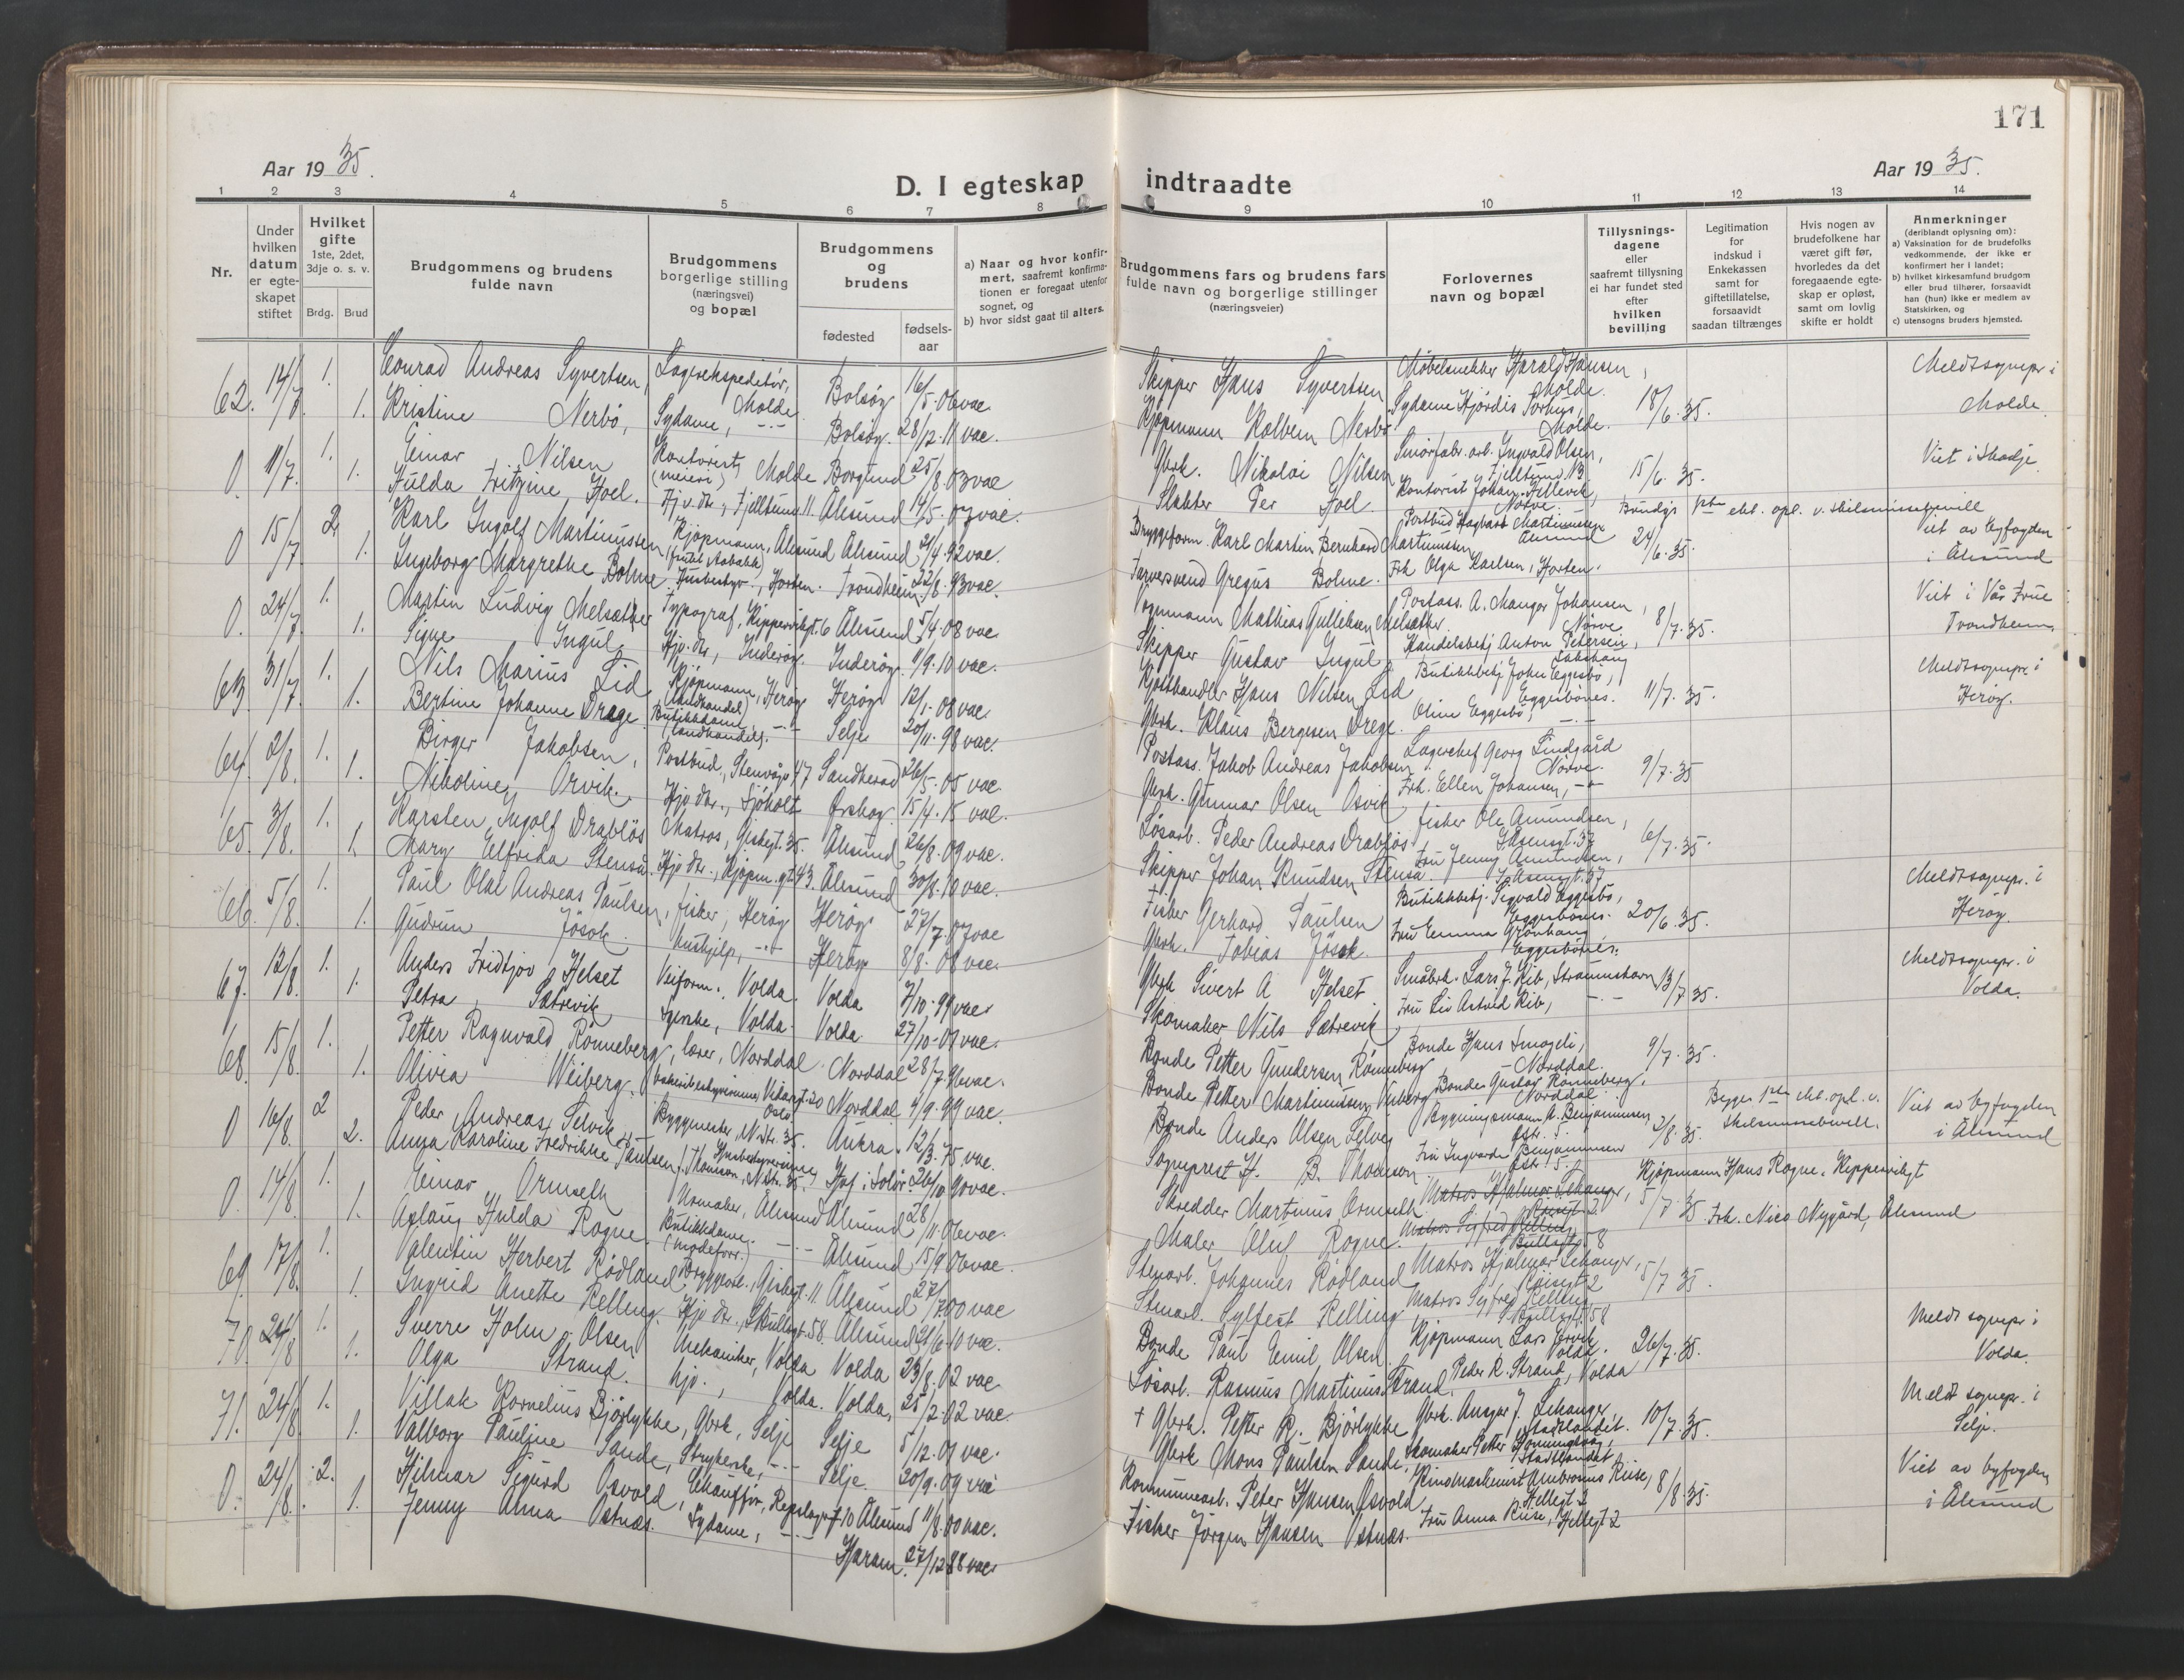 171
Aar 19 35.
Aar 19 35.
D. I egteskap indtraadte
1 2 3 4 5 6 7 8 9 10 11 12 13 14
Nr.
Under hvilken datum er egteskapet stiftet
Hvilket gifte
1ste, 2det, 3dje o. s. v.
Brdg. Brud
Brudgommens og brudens fulde navn
Brudgommens borgerlige stilling (næringsvei) og bopæl
Brudgommens og brudens
fødested
fødsels-aar
a) Naar og hvor konfirmert, saafremt konfirmationen er foregaat utenfor sognet, og
b) hvor sidst gaat til alters.
Brudgommens fars og brudens fars fulde navn og borgerlige stillinger (næringsveier)
Forlovernes navn og bopæl
Tillysningsdagene eller saafremt tillysning ei har fundet sted efter hvilken bevilling
Legitimation for indskud i Enkekassen samt for giftetillatelse, forsaavidt saadan tiltrænges
Hvis nogen av brudefolkene har været gift før, hvorledes da det foregaaende egteskap er opløst, samt om lovlig skifte er holdt
Anmerkninger (deriblandt oplysning om):
a) Vaksination for de brudefolks vedkommende, der ikke er konfirmert her i landet;
b) hvilket kirkesamfund brudgom eller brud tilhører, forsaavidt han (hun) ikke er medlem av Statskirken, og
c) utensogns bruders hjemsted.
62. 14/7 1. Konrad Andreas Syvertsen, Lagerekspeditør, Molde Bolsøy 16/5-06 vac. Skipper Hans Syvertsen Møbelsnekker Harald Hansen, Molde. 18/6.35. Meldt sognepr. i Molde.
1. Kristine Nerbö, Sydame, -"- Bolsøy. 28/12.11 vac. Kjøpmann Kolbein Nerbö Sydame Hjördis Molde.
0. 11/7. 1. Einar Nilsen Kontorist (meieri) Molde Borgund 25/8.03 vac. Gbrk. Nikolai Nilsen Smörfabr. arb. Ingvald Olsen, Fjelltunv. 13 15/6.35. Viet i Skodje
1. Hulda Fritzine Hoel. Hj. v. dr., Fjelltunv. 11. Ålesund 14/5.07 vac. Slakter Per Hoel Kontorist Johan Nörve
0 15/7 2. Karl Ingolf Martinussen Kjøpmann, Ålesund (frukt & tobakk) Ålesund 21/4.92 vac. Bryggeform. Karl Martin Bernhard Martinussen Postbud Hagbart Martinussen Ålesund 24/6.35. Brudgs pte ekt. opl. v. skilsmissebevill Viet av byfogden i Ålesund
1. Ingeborg Margrethe Bolme. Husbestyr., Horten. Trondheim 22/8.93 vac. Farversvend Gregus Bolme. Frk Olga Karlsen, Horten.
0. 24/7 1. Martin Ludvig Melsæther Typograf, Kippervikgt. 6 Ålesund 5/4.08 vac. Mathias Gulliksen Melsæther. Postass. A. Mangor Johansen, Nörve 8/7.35. Viet i Vår Frue Trondheim.
1. Signe Ingul. Hj. v. dr, Inderøy. Inderøy. 11/9.10 vac. Skipper Gustav Ingul Handelsbetj Anton Petersen,
63. 31/7. 1. Nils Marius Lid Kjøpmann, Herøy (landhandel) Herøy 12/1.08 vac. Kjötthandler Hans Nilsen Lid Butikkbetj John Eggesbö, Eggesbönes. 11/7.35. Meldt sognepr. i Herøy.
1. Bertine Johanne Drage. Butikkdame (landhandel). -"- Selje 20/11.98 vac. Gbrk. Klaus Bergesen Drege. Oline Eggesbö, -"-
64. 2/8. 1. Birger Jakobsen, Postbud, Stenvåg. 47 Sandherad 26/5.05 vac. Postass. Jakob Andreas Jakobsen Lagerchef Georg Lindgård Nörve. 9/7.35
1. Nikoline Orvik. Hj. v dr., Sjöholt Ørskog. 15/4.15 vac. Gbrk. Gunnar Olsen Osvik Frk. Ellen Johansen, -"-
65. 3/8. 1. Karsten Ingolf Drabløs Matros, Giskegt. 35. Ålesund 26/8.09 vac. Løsarb. Peder Andreas Drabløs. Fisker Ole Amundsen, Ivar Aasengt. 37 6/7.35.
1. Mary Elfrida Stenså. Hj. v. dr., Kjøpm. gt. 43. Ålesund 30/8.10 vac. Skipper Johan Knudsen Stenså. Fru Jenny Amundsen,
66. 5/8. 1. Paul Olai Andreas Paulsen, Fisker, Herøy Herøy 27/7.07 vac Fisker Gerhard Paulsen Butikkbetj. Sigvald Eggesbö, Eggesbönes. 20/6.35. Meldt sognepr. i Herøy.
1. Gudrun Jösok. Hushjelp, -"- Herøy 8/8.08 vac. Gbrk. Tobias Jösok. Fru Emma Grönhaug Eggesbönes.
67. 12/8. 1. Anders Fridtjov Helset Veiform., Volda. Volda 7/10.99 vac. Gbrk Sivert A Helset Småbrk. Lars J. Rib, Straumshavn 13/7.35. Meldt sognepr. i Volda.
1. Petra Sætrevik Syerske, Volda. Volda 27/10.01 vac. Skomaker Nils Sætrevik Fru Liv Astrid Rib, -"-
68. 15/8. 1. Petter Ragnvald Rönneberg, lærer, Norddal Norddal 28/7.96 vac. Bonde Petter Gundersen Rönneberg Bonde Hans Smoge Norddal. 9/7.35.
1. Olivia Weiberg. bakeribestyrerinne, Vidarsgt. 20 Oslo Norddal 4/9.99 vac. Bonde Petter Martinussen Viberg Bonde Gustav Rönneberg, Norddal.
0 16/8. 2 Peder Andreas Selvik, Byggmester, N. str. 35. Aukra. 12/3.75 vac. Bonde Anders Olsen Selvig Bygningsmann A. Benjaminsen, 2/8.35. Begges pte ekt. opl. v. skilsmissebevill. Viet av byfogden i Ålesund
2. Anna Karoline Fredrikke Paulsen f. Thomson, Husbestyrerinne N. str. 35. Hof i Solör. 26/10.90 vac. Sogneprest H. B. Thomson. Fru Ingvarda Benjaminsen
0. 14/8. 1. Einar Ormseth Urmaker, Ålesund Ålesund 28/11.06 vac. Skredder Martinus Ormseth. Matros Hjalmar Lehanger, Röisgt. 2 5/7.35 Kjøpmann Hans Rogne, Kippervikgt
1. Aslaug Hulda Rogne. Butikkdame. (modeforr.) -"- Ålesund 15/9.06 vac. Maler Oluf Rogne. Matros Sigfred Relling, Skuleg 58 Frk. Nico Nygård, Ålesund
69. 17/8. 1. Valentin Herbert Rödland Bryggearb., Giskegt. 11. Ålesund 27/7.00 vac Stenarb. Johannes Rödland Matros Hjalmar Lehanger, Röisgt. 2 5/7 35.
1. Ingrid Anette Relling. Hj. v dr., Skulegt. 58. Ålesund 21/6.10 vac. Stenarb. Sylfest Relling Matros Sigfred Relling Skulegt. 58
70. 24/8 1. Sverre Holm Olsen Mekaniker, Volda Volda 23/8.02 vac Bonde Paul Emil Olsen Kjøpmann Lars Ervik, Volda. 26/7.35. Meldt sognepr. i Volda.
1. Olga Strand. hj., Volda. Volda. 25/2.02 vac. Løsarb. Rasmus Martinus Strand. Peder R. Strand, Volda
71. 24/8. 1. Villak Kornelius Bjørlykke, Gbrk, Selje Selje 5/12.01 vac. + Gbrk. Petter R. Bjørlykke Gbrk. Ansgar J. Lehanger, Stadtlandet. 10/7.35. Meldt sognepr. i Selje.
1. Valborg Pauline Sande, Strykerske, -"- Selje 20/9.09 vac Gbrk Mons Paulsen Sande, Skomaker Petter Honningsvåg, Stadtlandet
0. 24/8. 2. Hilmar Sigurd Osvold, Chauffør, Repslagergt 10 Ålesund 11/8.00 vac. Kommunearb. Peter Hansen Osvold Kinomaskinist Ambrosius Riise, Hellegt 2 8/8.35. Viet av byfogden i Ålesund
1. Jenny Anna Ostnæs. Sydame, -"- Haram. 27/12 88 vac. Fisker Jörgen Hansen Ostnæs. Fru Anna Riise, Hellegt 2